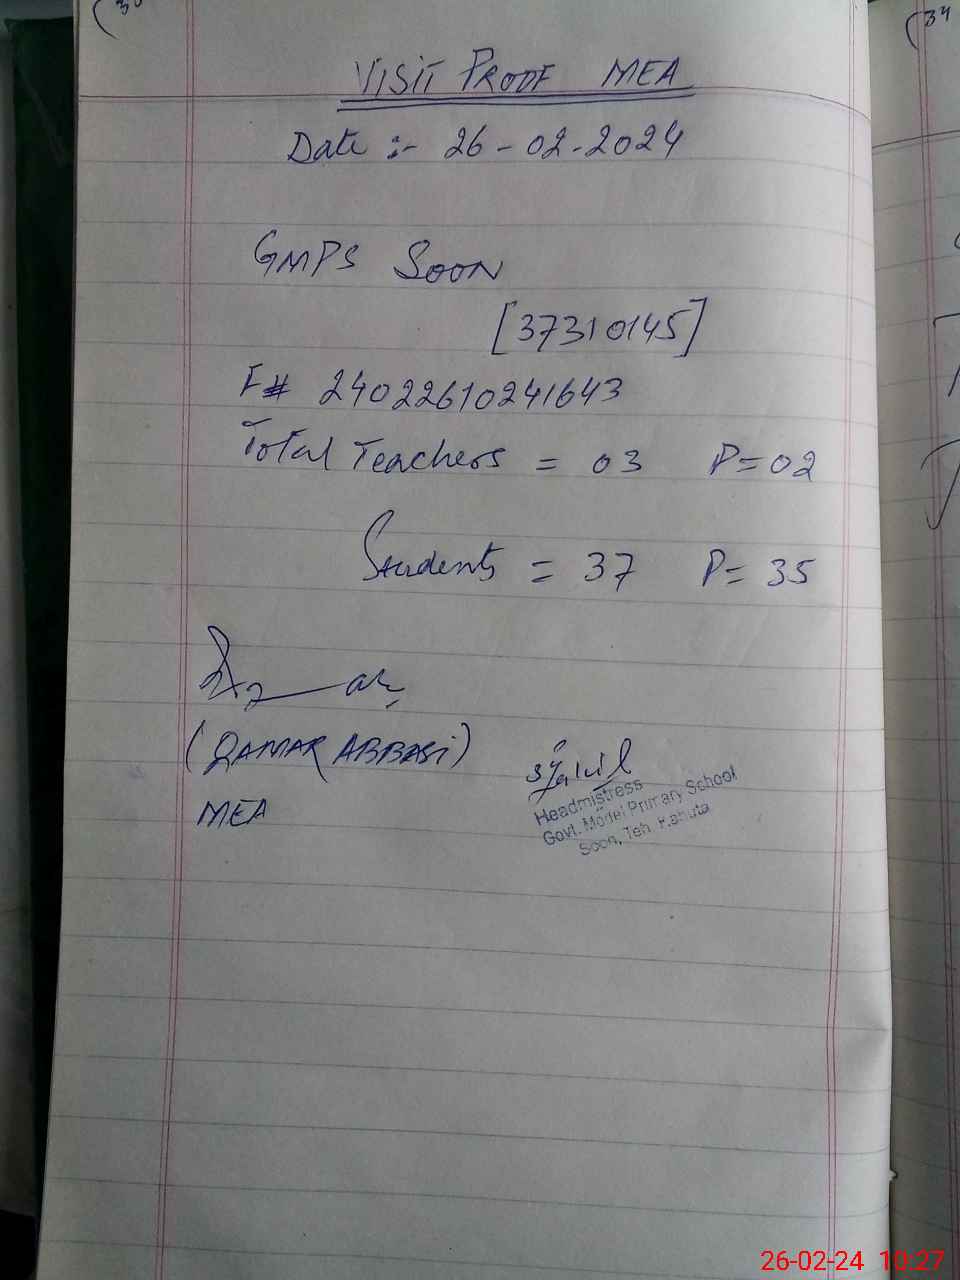 VISIT PROOF MEA
Date :- 26-02-2024
GMPS SOON
[37310145]
F# 24022610241643
Total Teachers = 03 P=02
Students = 37 P= 35
(QAMAR ABBASI)
MEA
Headmistress
Govt. Model Primary School
Soon, Teh. Kahuta
(34
26-02-24 10:27